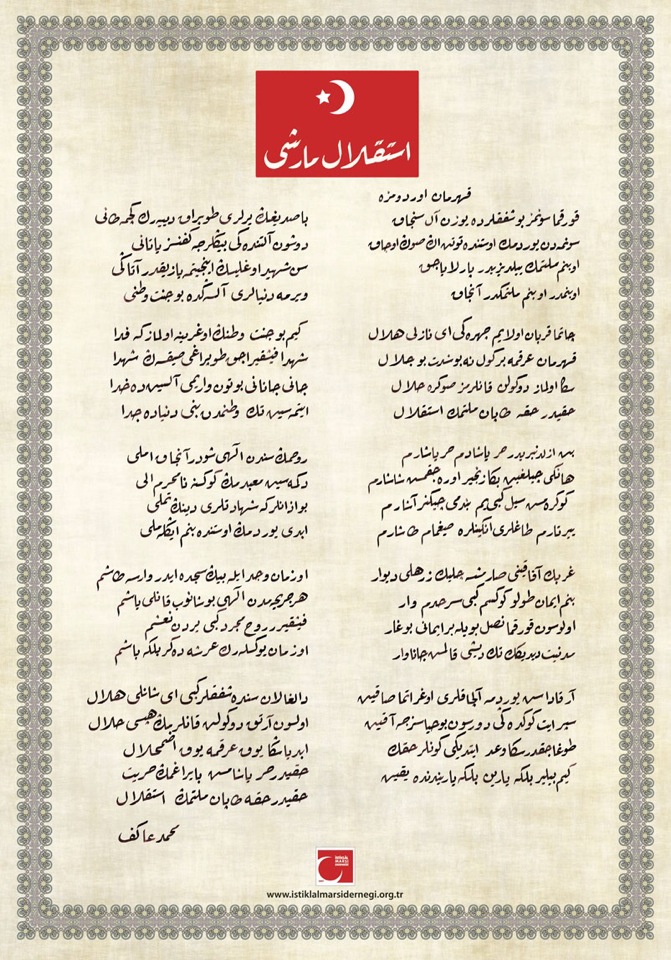 استقلال مارشی
قهرمان اوردومزه
قورقما سونمز بو شفقلرده یوزن آل سنجاق
سونمه‌دن یوردمك اوستنده توتن اڭ صوڭ اوجاق
او بنم ملتمڭ ییلدیزیدر پارلایاجق
او بنمدر او بنم ملتمڭدر آنجاق
چاتما قربان اولایم چهره‌ڭی ای نازلی هلال
قهرمان عرقمه برگول نه بو شدت بو جلال
سڭا اولماز دوكولن قانلرمز صوڭره حلال
حقیدر حقه طاپان ملتمڭ استقلال
بن ازلدنبریدر حر یاشادم حر یاشارم
هانكی چیلغین بڭا زنجیر اوره‌جقمش شاشارم
كوكره‌مش سیل كبی‌یم بندیمی چیكنر آشارم
ییرتارم طاغلری انگینلره صیغمام طاشارم
غربڭ آفاقنی صارمشسه چلیك زرهلی دیوار
بنم ایمان طولو كوكسم كبی سرحدم وار
اولوسون قورقما نصل بویله بر ایمانی بوغار
مدنیت دیدیڭك تك دیشی قالمش جاناوار
آرقاداش یوردمه آلچاقلری اوغراتما صاقین
سپر ایت كوكده‌ڭی دورسون بو حیاسزجه آقین
طوغاجقدر سڭا وعد ایتدیكی كونلر حقڭ
كیم بیلیر بلكه یارین بلكه یاریندن ده یقین
باصدیغڭ یرلری طوپراق دییه‌رك كچمه طانی
دوشون آلتنده‌كی بیڭلرجه كفنسز یاتانی
سن شهید اوغلیسڭ اینجیتمه یازیقدر آتاڭی
ویرمه دنیالری آلسه‌ڭده بو جنت وطنی
كیم بو جنت وطنڭ اوغرینه اولمازكه فدا
شهدا فیشقیراجق طوپراغی صیقسه‌ڭ شهدا
جانی جانانی بوتون واریمی آلسین ده خدا
ایتمه‌سین تك وطنمدن بنی دنیاده جدا
روحمڭ سندن الهی شودر آنجاق املی
دكمه‌سین معبدمڭ كوكسنه نامحرم الی
بو اذانلركه شهادتلری دینڭ تملی
ابدی یوردمڭ اوستنده بنم ایڭله‌ملی
او زمان وجد ایله بیڭ سجده ایدر وارسه طاشم
هر جریحه‌مدن الهی بوشانوب قانلی یاشم
فیشقیرر روح مجرد كبی یردن نعشم
او زمان یوكسله‌رك عرشه دگر بلكه باشم
دالغالان سنده شفقلر كبی ای شانلی هلال
اولسون آرتق دوكولن قانلریمڭ هپسی حلال
ابدیاً سڭا یوق عرقمه یوق اضمحلال
حقیدر حر یاشامش بایراغمڭ حریت
حقیدر حقه طاپان ملتمڭ استقلال
محمد عاكف
İSTİKLÂL
MARŞI
DERNEĞİ
www.istiklalmarsidernegi.org.tr